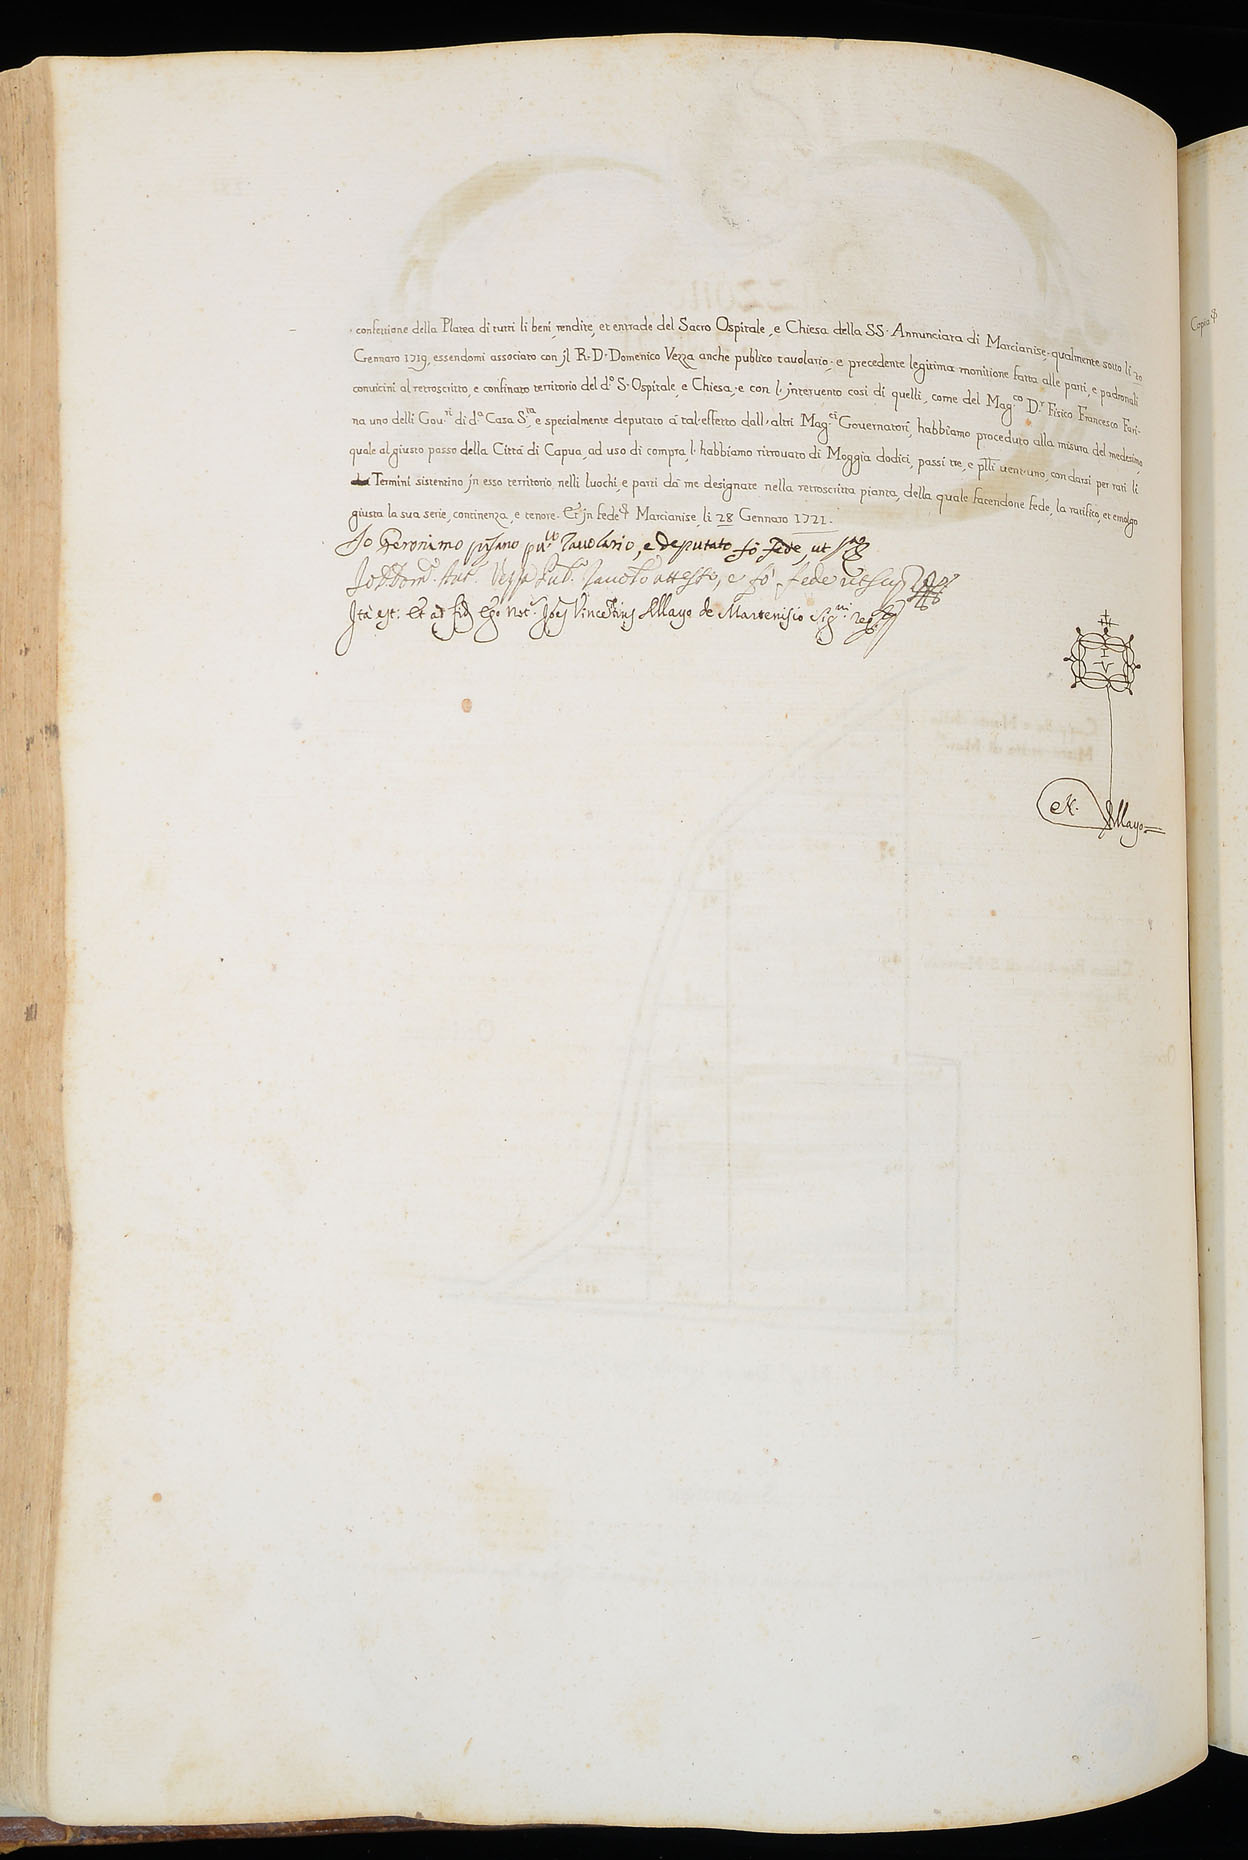 confettione della Platea di tutti li beni, rendite, et entrade del Sacro Ospitale, e Chiesa della SS. Annunciata di Marcianise, qualmente sotto li 20
Gennaro 1719, essendomi associato con jl R. D. Domenico Vezza anche publico tavolario, e precedente legitima monitione fatta alle parti, e padronali
convicini al retroscritto, e confinato territorio del d.º S. Ospitale, e Chiesa, e con l'jntervento così di quelli, come del Mag.co D.r Fisico Francesco Fari-
na uno delli Gov.ri di d.ª Casa S.ta, e specialmente deputato à tal'effetto dall'altri Mag.ci Governatori, habbiamo proceduto alla misura del medesimo,
quale al giusto passo della Città di Capua, ad uso di compra, l'habbiamo ritrovato di Moggia dodici, passi tre, e p̃lli vent'uno, con darsi per rati li
Termini sistentino jn esso territorio, nelli luochi, e parti dà me designate nella retroscritta pianta, della quale facendone fede, la ratifico, et emolgo
giusta la sua serie, continenza, e tenore. Et jn fede &c. Marcianise, li 28 Gennaro 1721.
Io Geronimo pisano pu.co Tavolario, e deputato fò fede, ut sup.a
Io D. Dom.co Ant.o Vezza Pub.co Tavol.o attesto, e fò fede ut sup.a
Ità est: Et ad fid. Ego Not.s Joẽs Vincentius Allayo de Martenisio sig.vi reg.s
N. Allayo
Copia